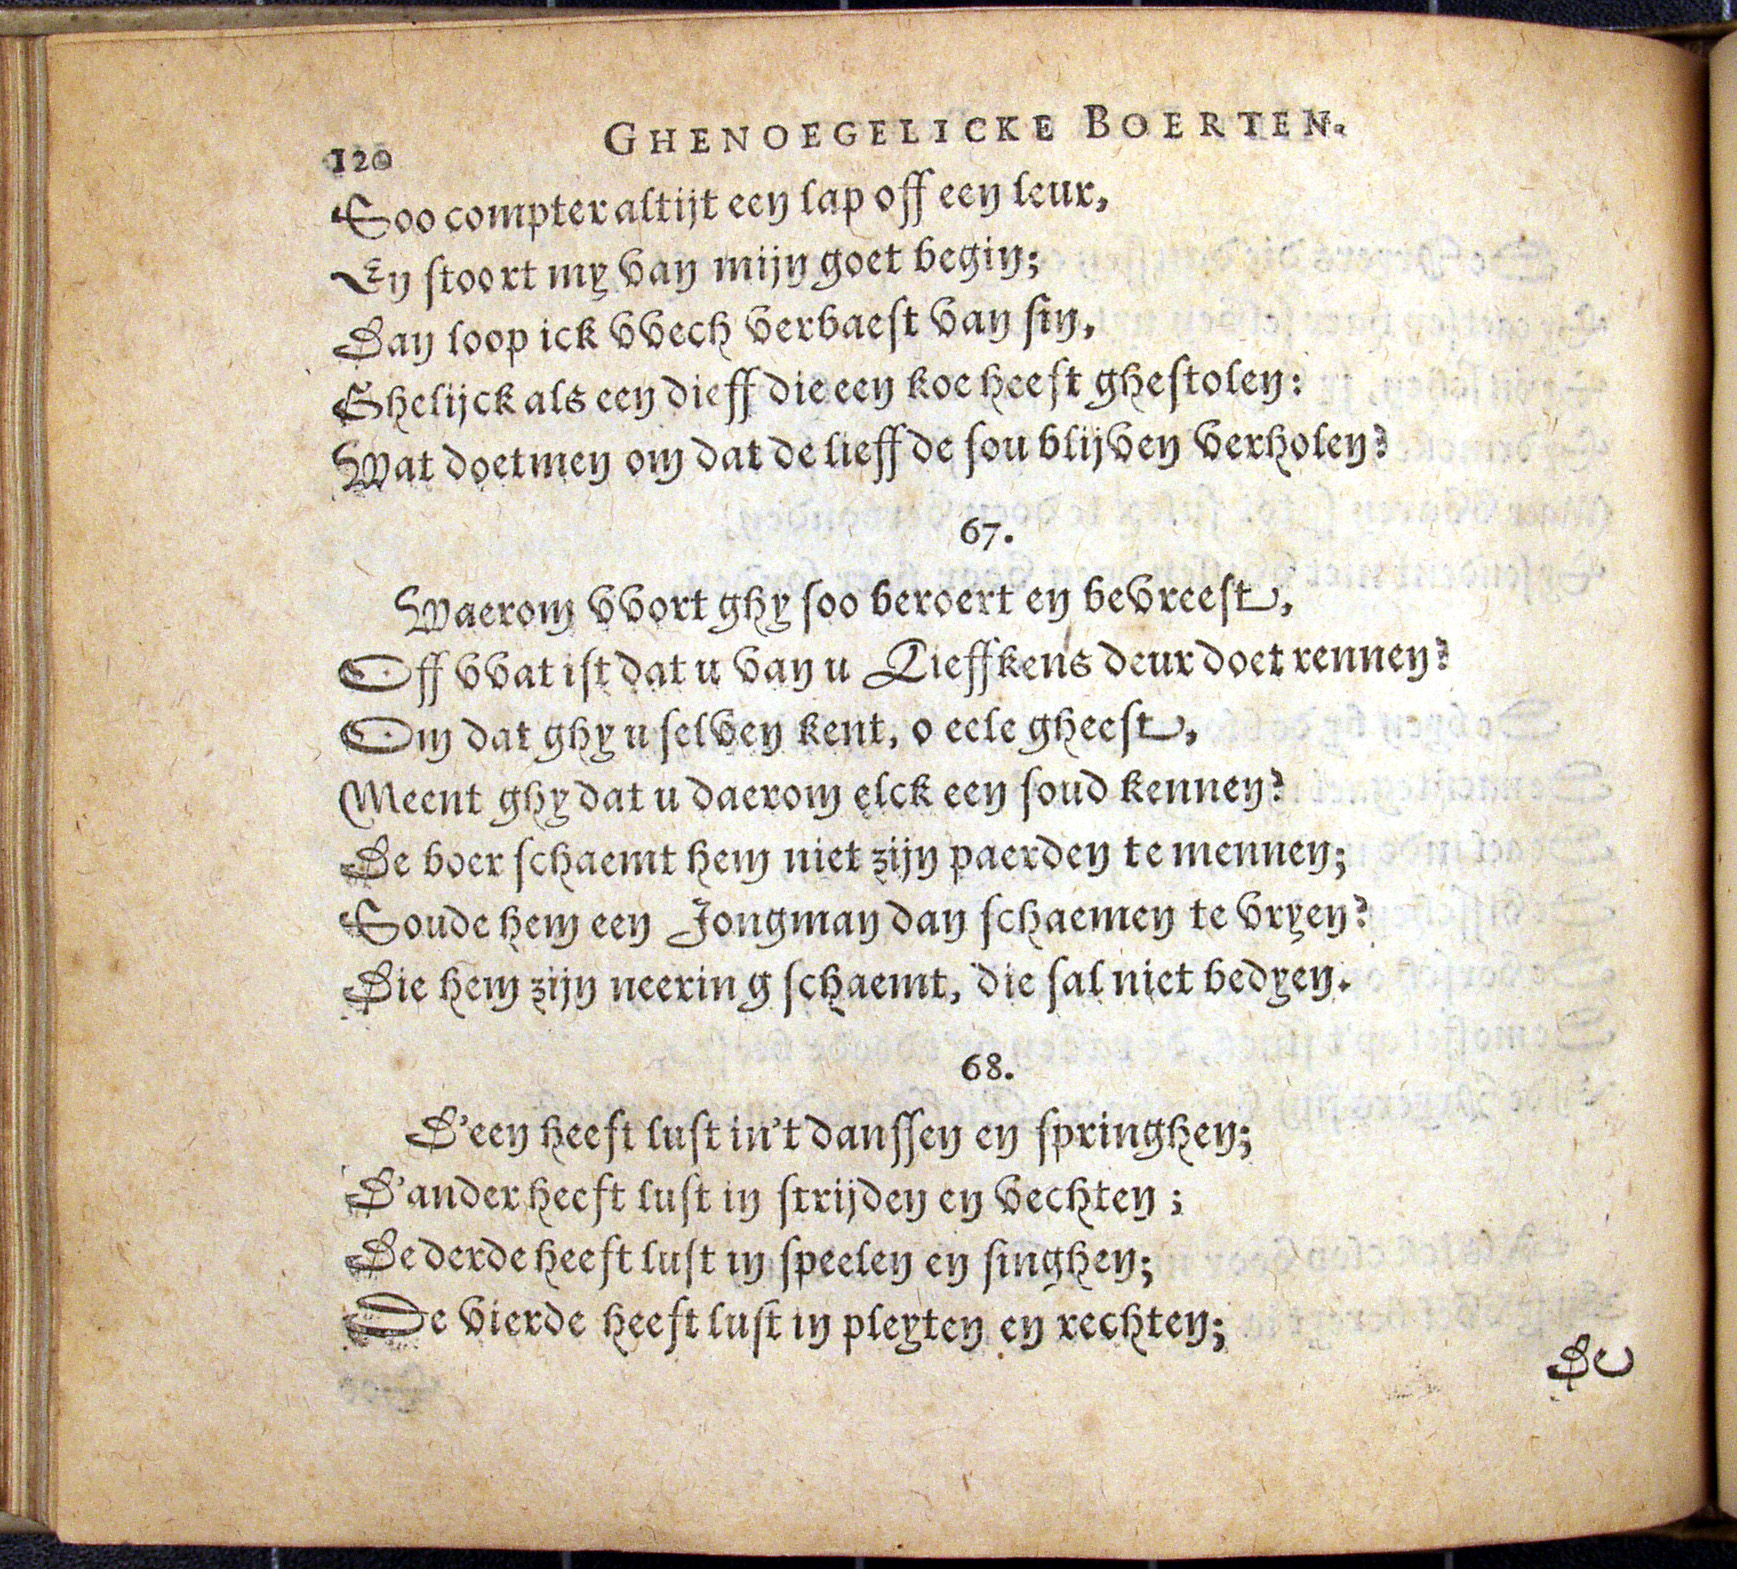 120 GHENOEGELICKE BOERTEN.
Soo compter altijt een lap off een leur,
En stoort my van mijn goet begin;
Dan loop ick vvech verbaest van sin,
Ghelijck als een dieff die een koe heeft ghestolen:
Wat doetmen om dat de lieffde sou blijven verholen?
67.
Waerom vvort ghy soo beroert en bevreest,
Off vvat ist dat u van u Lieffkens deur doet rennen?
Om dat ghy u selven kent, o eele gheest,
Meent ghy dat u daerom elck een soud kennen?
De boer schaemt hem niet zijn paerden te mennen;
Soude hem een Jongman dan schaemen te vryen?
Die hem zijn neering schaemt, die sal niet bedyen.
68.
D'een heeft lust in't danssen en springhen;
D'ander heeft lust in strijden en vechten;
De derde heeft lust in speelen en singhen;
De vierde heeft lust in pleyten en rechten;
De